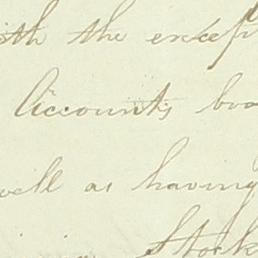 with the except
Accounts boo
well as having
Stock